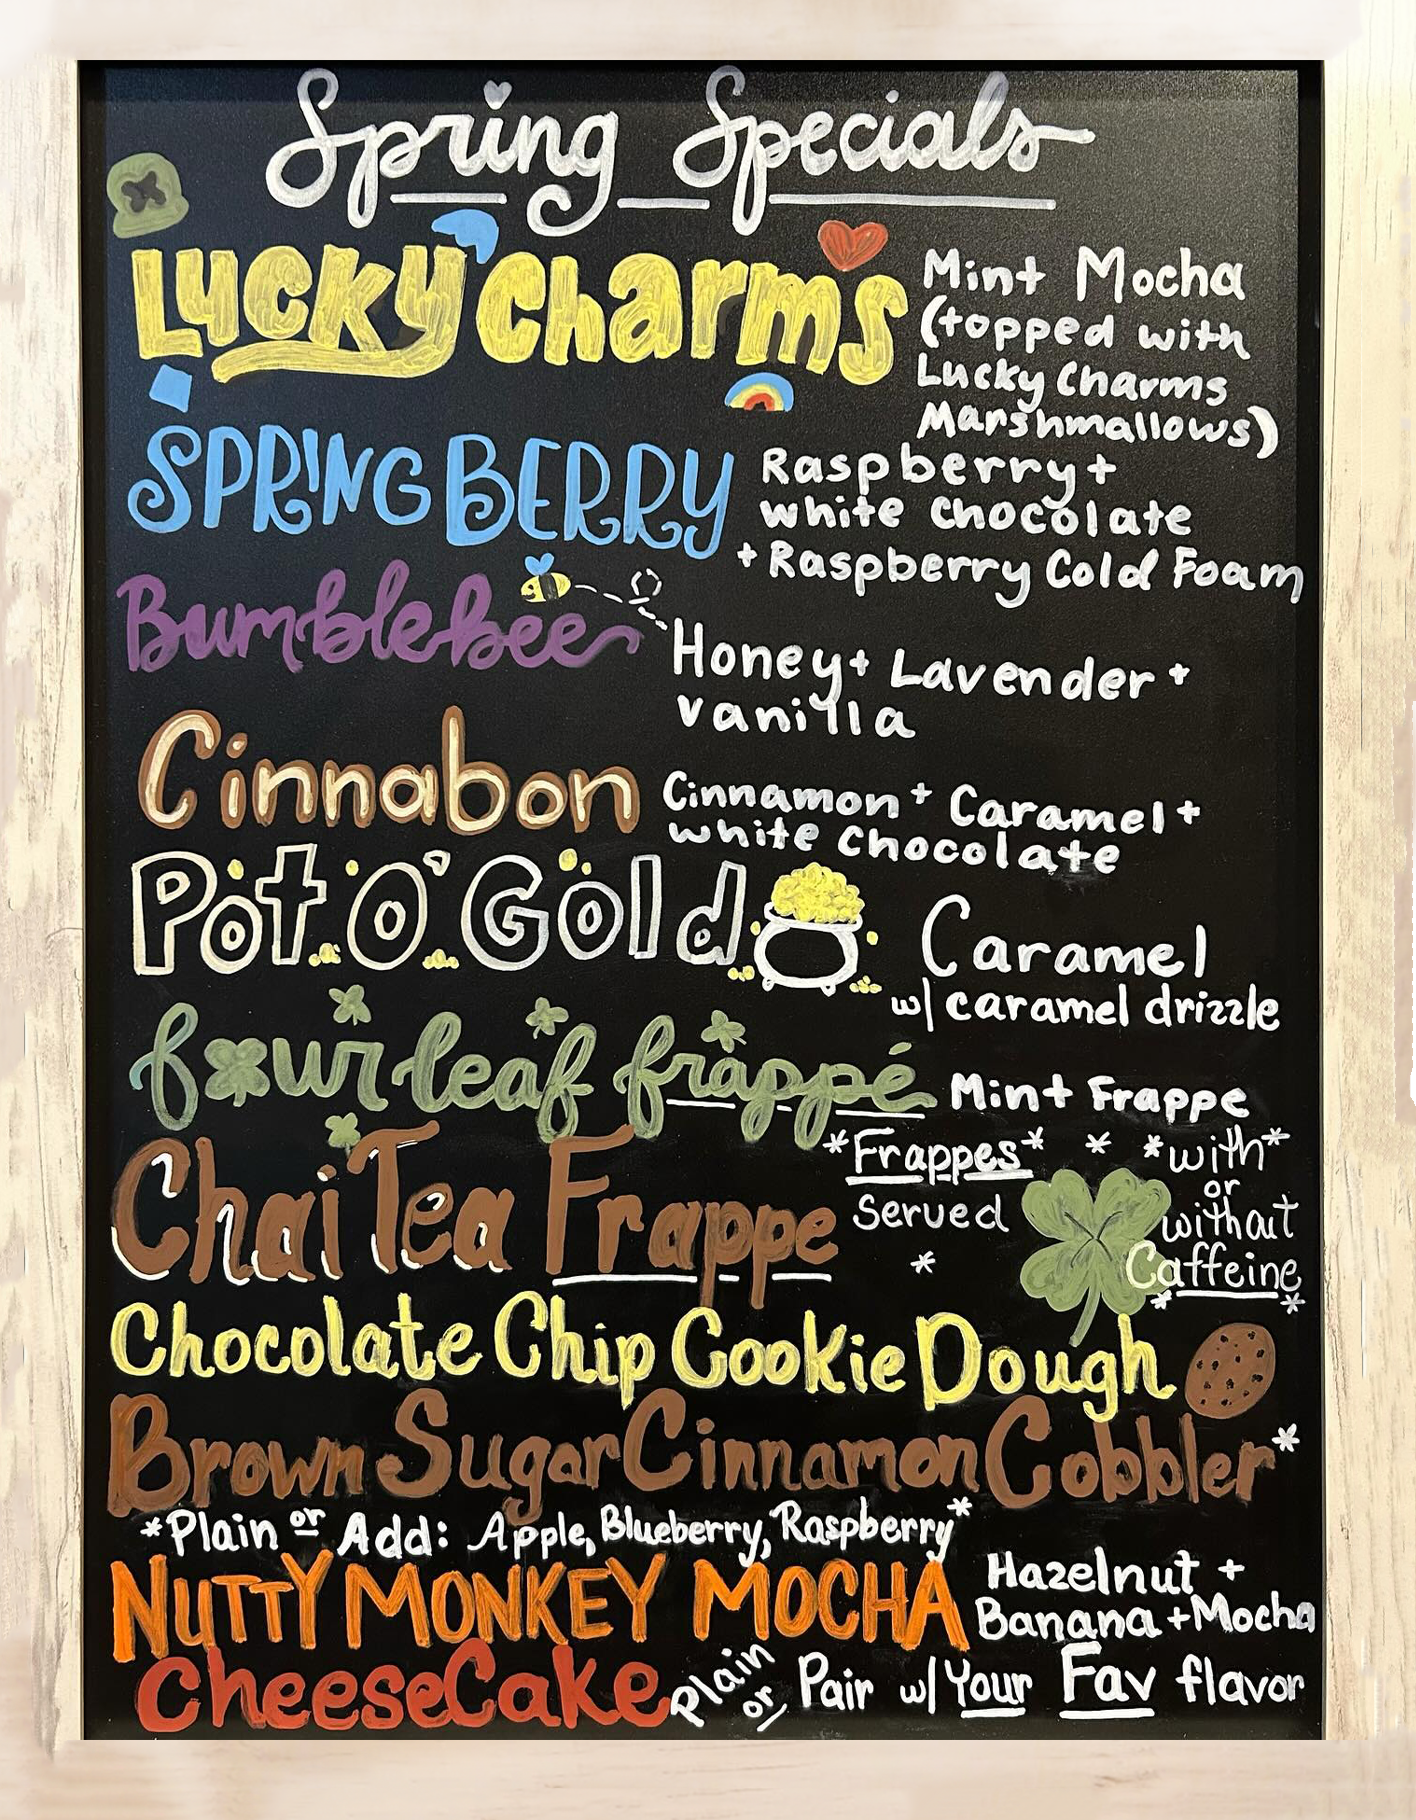 Spring Specials
Lucky Charms
Mint Mocha
(topped with
Lucky Charms
Marshmallows)
SPRING BERRY
Raspberry +
white chocolate
+ Raspberry Cold Foam
Bumblebee
Honey + Lavender +
vanilla
Cinnabon
Cinnamon + Caramel +
white chocolate
Pot O' Gold
Caramel
w/ caramel drizzle
four leaf frappé
Mint Frappe
Chai Tea Frappe
*Frappes* * *with*
Served or
without
* Caffeine
* *
Chocolate Chip Cookie Dough
Brown Sugar Cinnamon Cobbler*
*Plain or Add: Apple, Blueberry, Raspberry*
NUTTY MONKEY MOCHA
Hazelnut +
Banana + Mocha
CheeseCake
Plain or Pair w/ Your Fav flavor